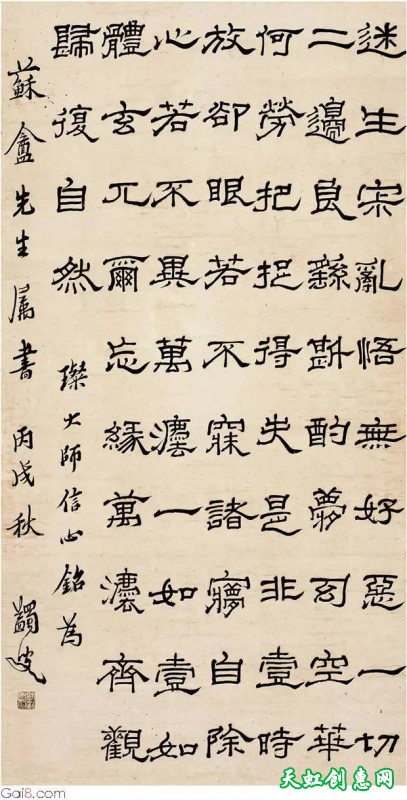 迷生寂亂悟無好惡一切
二邊良繇斟酌夢幻空華
何勞把捉得失是非壹時
放卻眼若不寐諸㝱自除
心若不異萬灋一如壹如
體玄兀爾忘緣萬灋齊觀
歸復自然
璨大師信心銘為
蘇盦先生属書 丙戌秋 蠲叟
Gai8.com
天虹创惠网